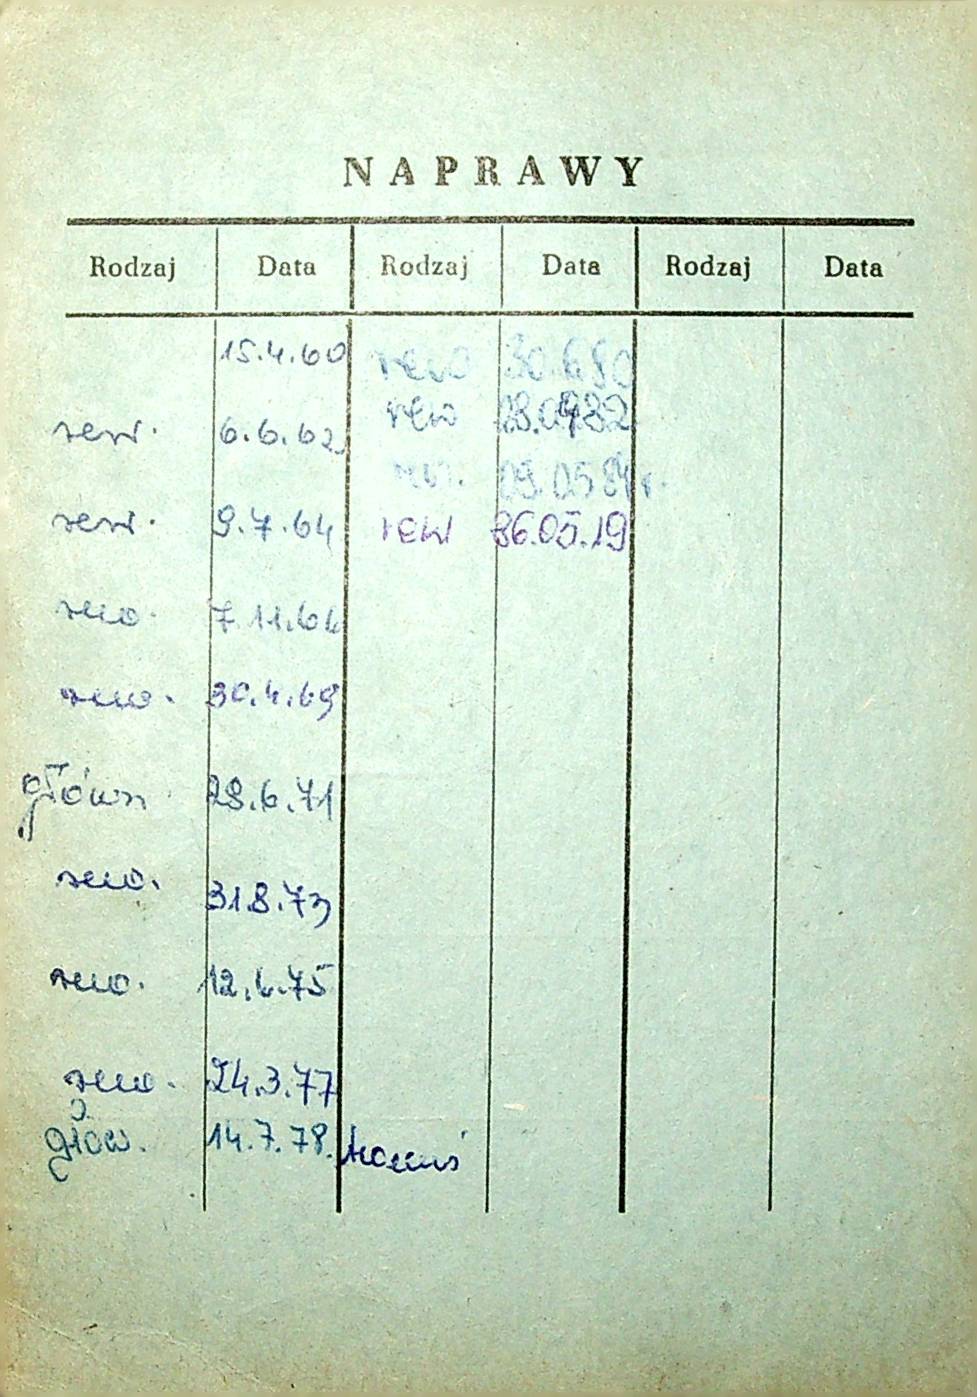 NAPRAWY
Rodzaj Data Rodzaj Data Rodzaj Data
15.4.60
rew. 6.6.62
rew. 9.7.64
rew. 7.11.66
rew. 30.4.69
główn 28.6.71
rew. 31.8.73
rew. 12.6.75
rew. 24.3.77
głów. 14.7.78.
rew 30.6.80
rew
rew. 09.05.84r.
rew 86.05.19